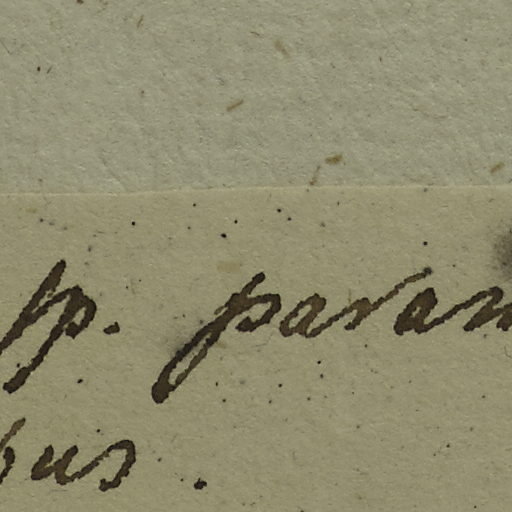 sp. param
bus.